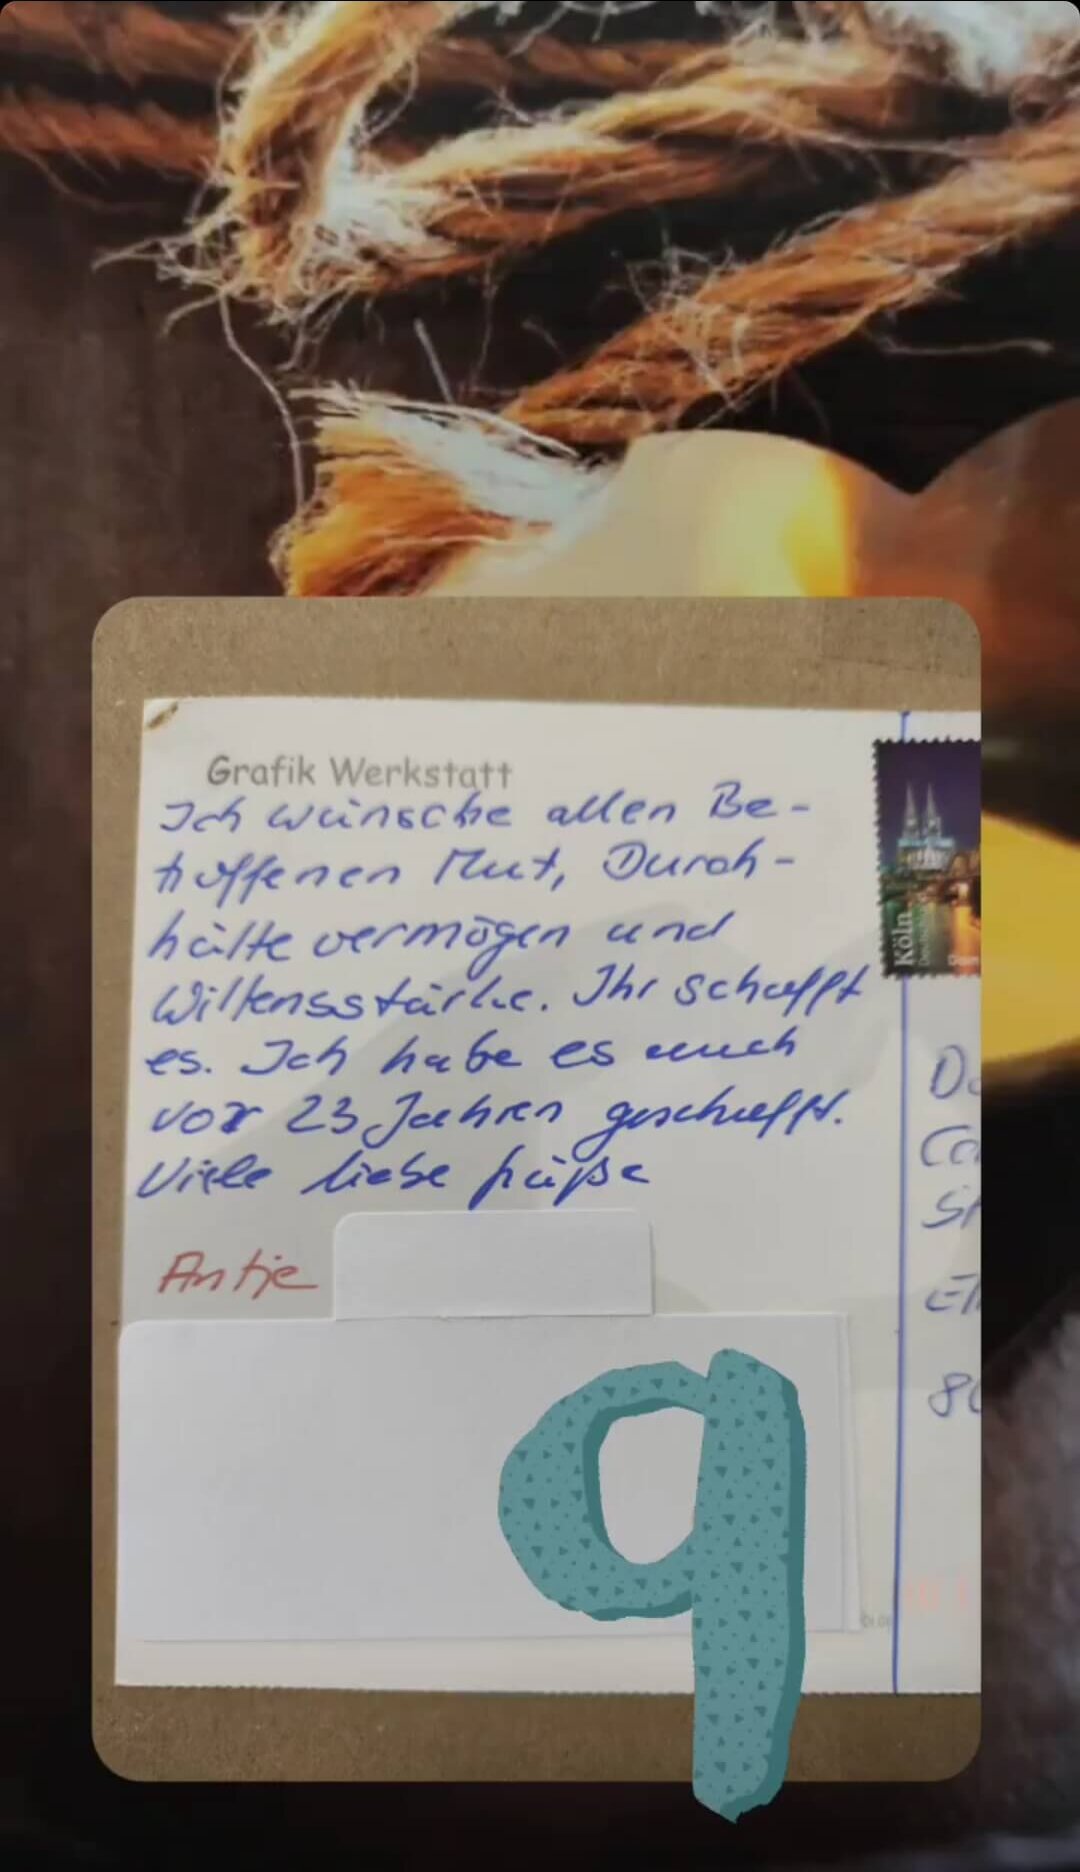 Grafik Werkstatt
Ich wünsche allen Be-
troffenen Mut, Durch-
haltevermögen und
Willensstärke. Ihr schafft
es. Ich habe es auch
vor 23 Jahren geschafft.
Viele liebe Grüße
Antje
Köln
q